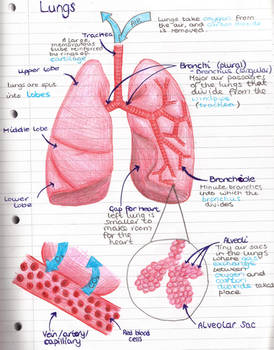 Lungs
Air
Lungs take oxygen from
the air, and carbon dioxide
is removed.
Trachea
A large
membranous
tube reinforced
by rings of
cartilage
Bronchi (plural)
- Bronchus (singular)
Major air passages
of the lungs that
divide from the
windpipe
(trachea)
Upper lobe
lungs are split
into lobes
Middle lobe
Lower lobe
Gap for heart
left lung is
smaller to
make room
for the
heart
Bronchiole
Minute branches
into which the
bronchus
divides
Alveoli
Tiny air sacs
in the lungs
where gas
exchange
between
oxygen and
carbon
dioxide takes
place
Alveolar Sac
O₂
CO₂
Vein/artery/
capillary
Red blood
cells